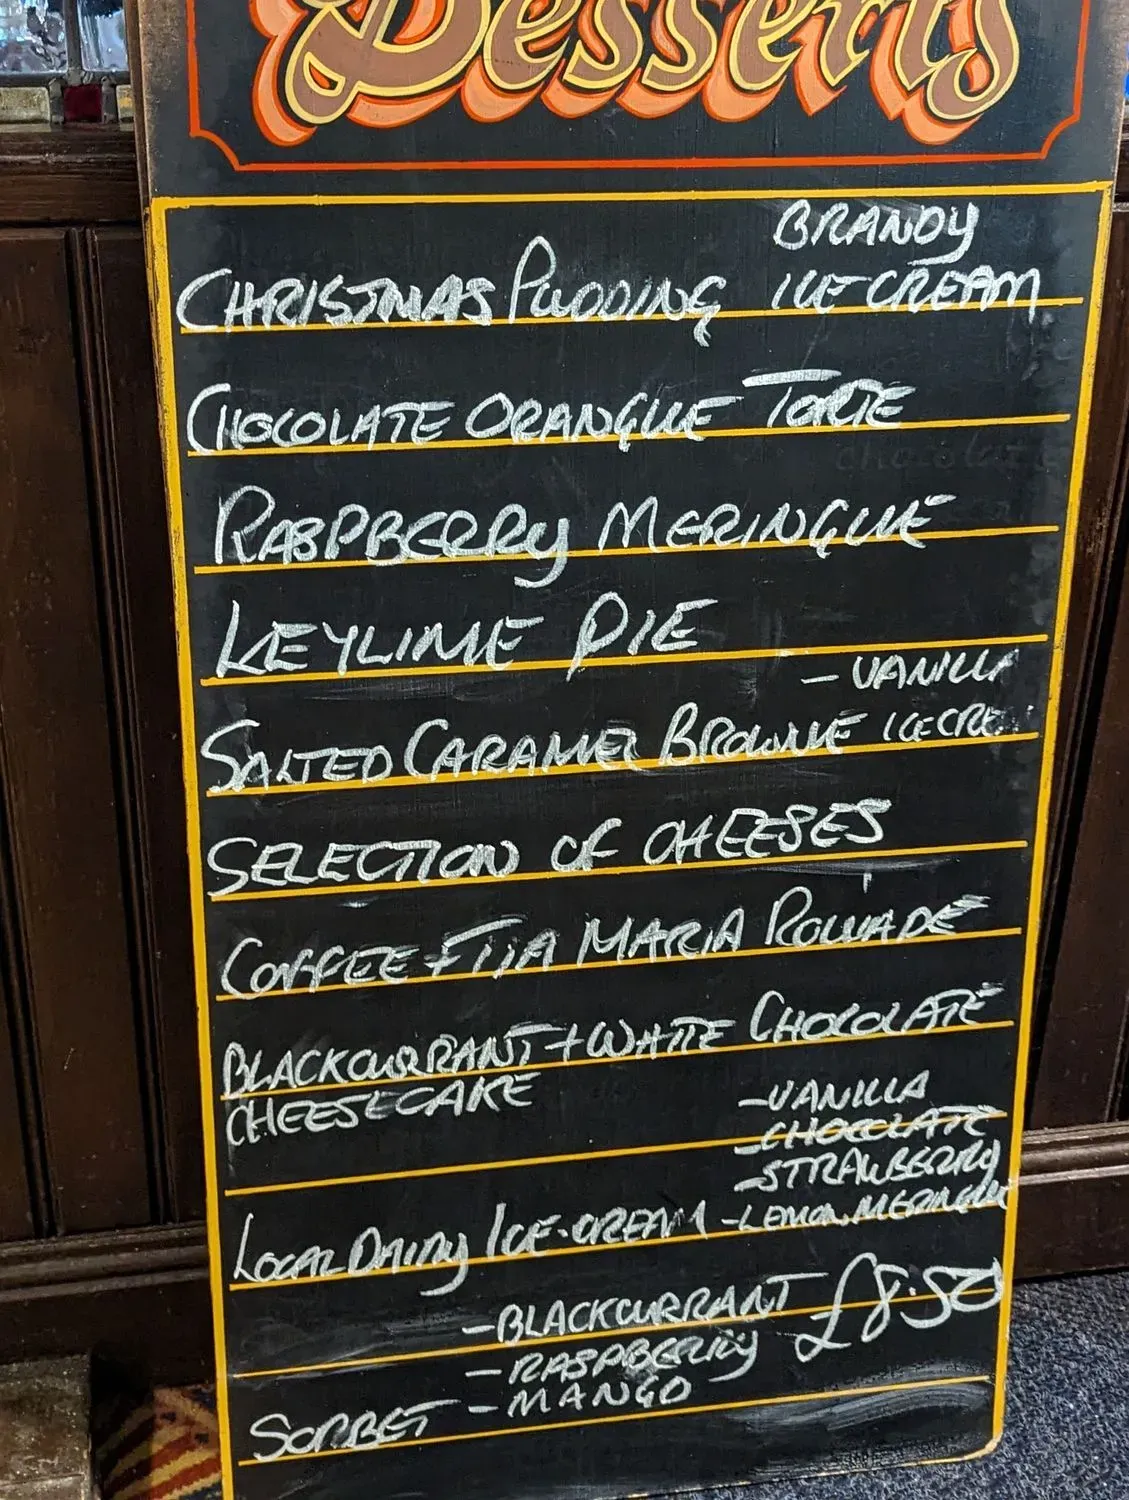 Desserts
BRANDY
CHRISTMAS PUDDING ICE-CREAM
CHOCOLATE ORANGUE TORTE
chocolate
RASPBERRY MERINGUE
KEYLIME PIE
- VANILLA
SALTED CARAMEL BROWNIE ICE CRE
SELECTION OF CHEESES
COFFEE + TIA MARIA ROULADE
BLACKCURRANT + WHITE CHOCOLATE
CHEESECAKE
- VANILLA
- CHOCOLATE
- STRAWBERRY
LOCAL DAIRY ICE-CREAM - LEMON MERINGUE
- BLACKCURRANT £8.50
- RASPBERRY
SORBET - MANGO